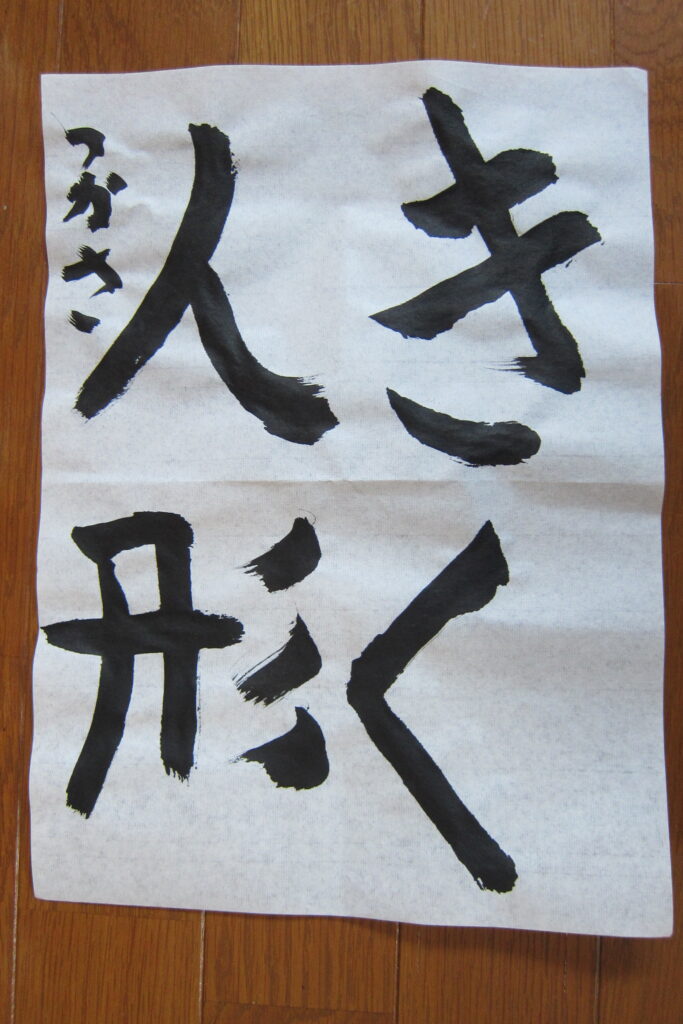 きく
人形
つかさ